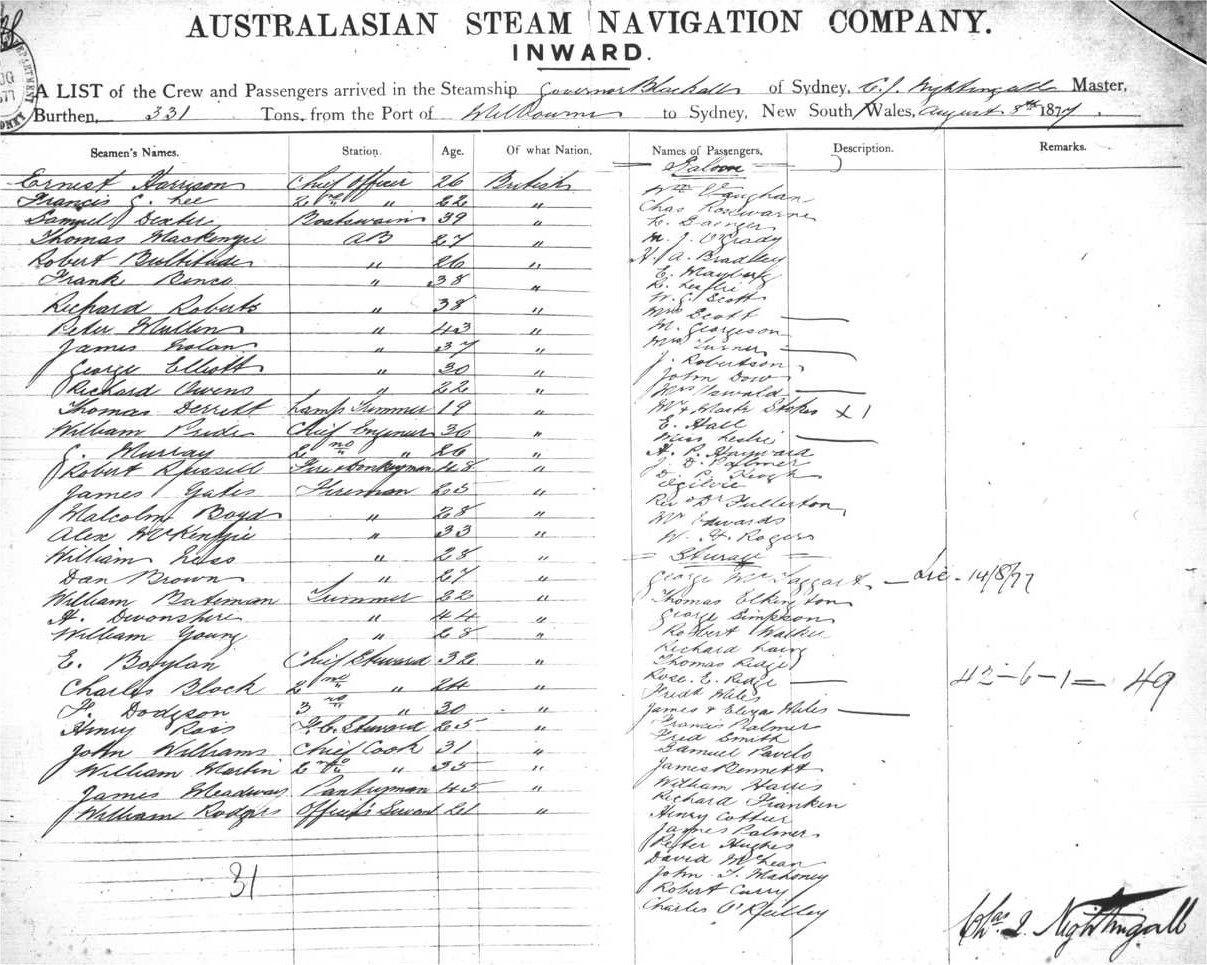 AUSTRALASIAN STEAM NAVIGATION COMPANY.
INWARD.
A LIST of the Crew and Passengers arrived in the Steamship Governor Blackall of Sydney, C. J. Nightingale Master,
Burthen, 331 Tons, from the Port of Melbourne to Sydney, New South Wales, August 8th 1877.
Seamen's Names. Station. Age. Of what Nation. Names of Passengers. Description. Remarks.
Ernest Harrison Chief Officer 26 British
Francis G. Lee 2nd " 22 "
Samuel Dexter Boatswain 39 "
Thomas Mackenzie AB 27 "
Robert Bultitude " 26 "
Frank " 38 "
Richard Roberts " 38 "
Peter Mullin " 43 "
James Nolan " 37 "
George Elliott " 30 "
Richard Owens " 22 "
Thomas Derrett Lamp Trimmer 19 "
William Pride Chief Engineer 36 "
Murray 2nd " 26 "
Robert Russell Fire & Donkeyman 48 "
James Gates Fireman 25 "
Malcolm Boyd " 28 "
Alex McKenzie " 33 "
William " 28 "
Dan Brown " 27 "
William Bateman Trimmer 22 "
H. Devonshire " 44 "
William Young " 28 "
E. Boylan Chief Steward 32 "
Charles Block 2nd " 24 "
F. Dodgson 3rd " 30 "
Henry Ross F.C. Steward 25 "
John Williams Chief Cook 31 "
William Martin 2nd " 35 "
James Meadway Pantryman 45 "
William Rodgers Officer's Servant 21 "
31
Saloon
Wm Vaughan
Chas Rosewarne
M. J. O'Grady
H. A. Bradley
E. Mayberg
L. Leslie
W. G. Scott
Mrs Scott
M. Georgeson
Mrs Turner
J. Robertson
John Dow
Mrs Oswald
Mr & Mastr Stokes X 1
E. Hall
Miss Leslie
A. P. Hayward
J. D. Palmer
D. P. Keogh
Ogilvie
Rev Dr Fullerton
Mr Edwards
W. H. Rogers
Steerage
George McTaggart - Lic - 14/8/77
Thomas Elkington
George Simpson
Robert Walker
Richard Laing
Thomas Ridge
Rose. E. Ridge
Fredk Wales
James & Eliza Wales
Francis Palmer
Fred Smith
Samuel Pavelo
James Bennett
William
Richard Franken
Henry Cottier
James Palmer
Peter Hughes
David McLean
John T. Mahoney
Robert Curry
Charles O'Reilley
42-6-1 = 49
Chas J. Nightingall